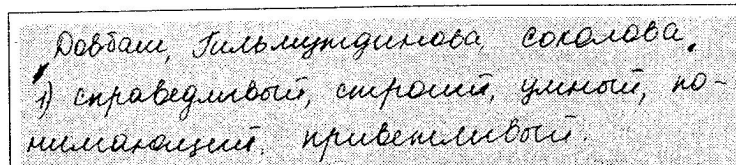 Довбаш, Гильмутдинова, соколова.
1) справедливый, строгий, умный, по-
нимающий, приветливый.